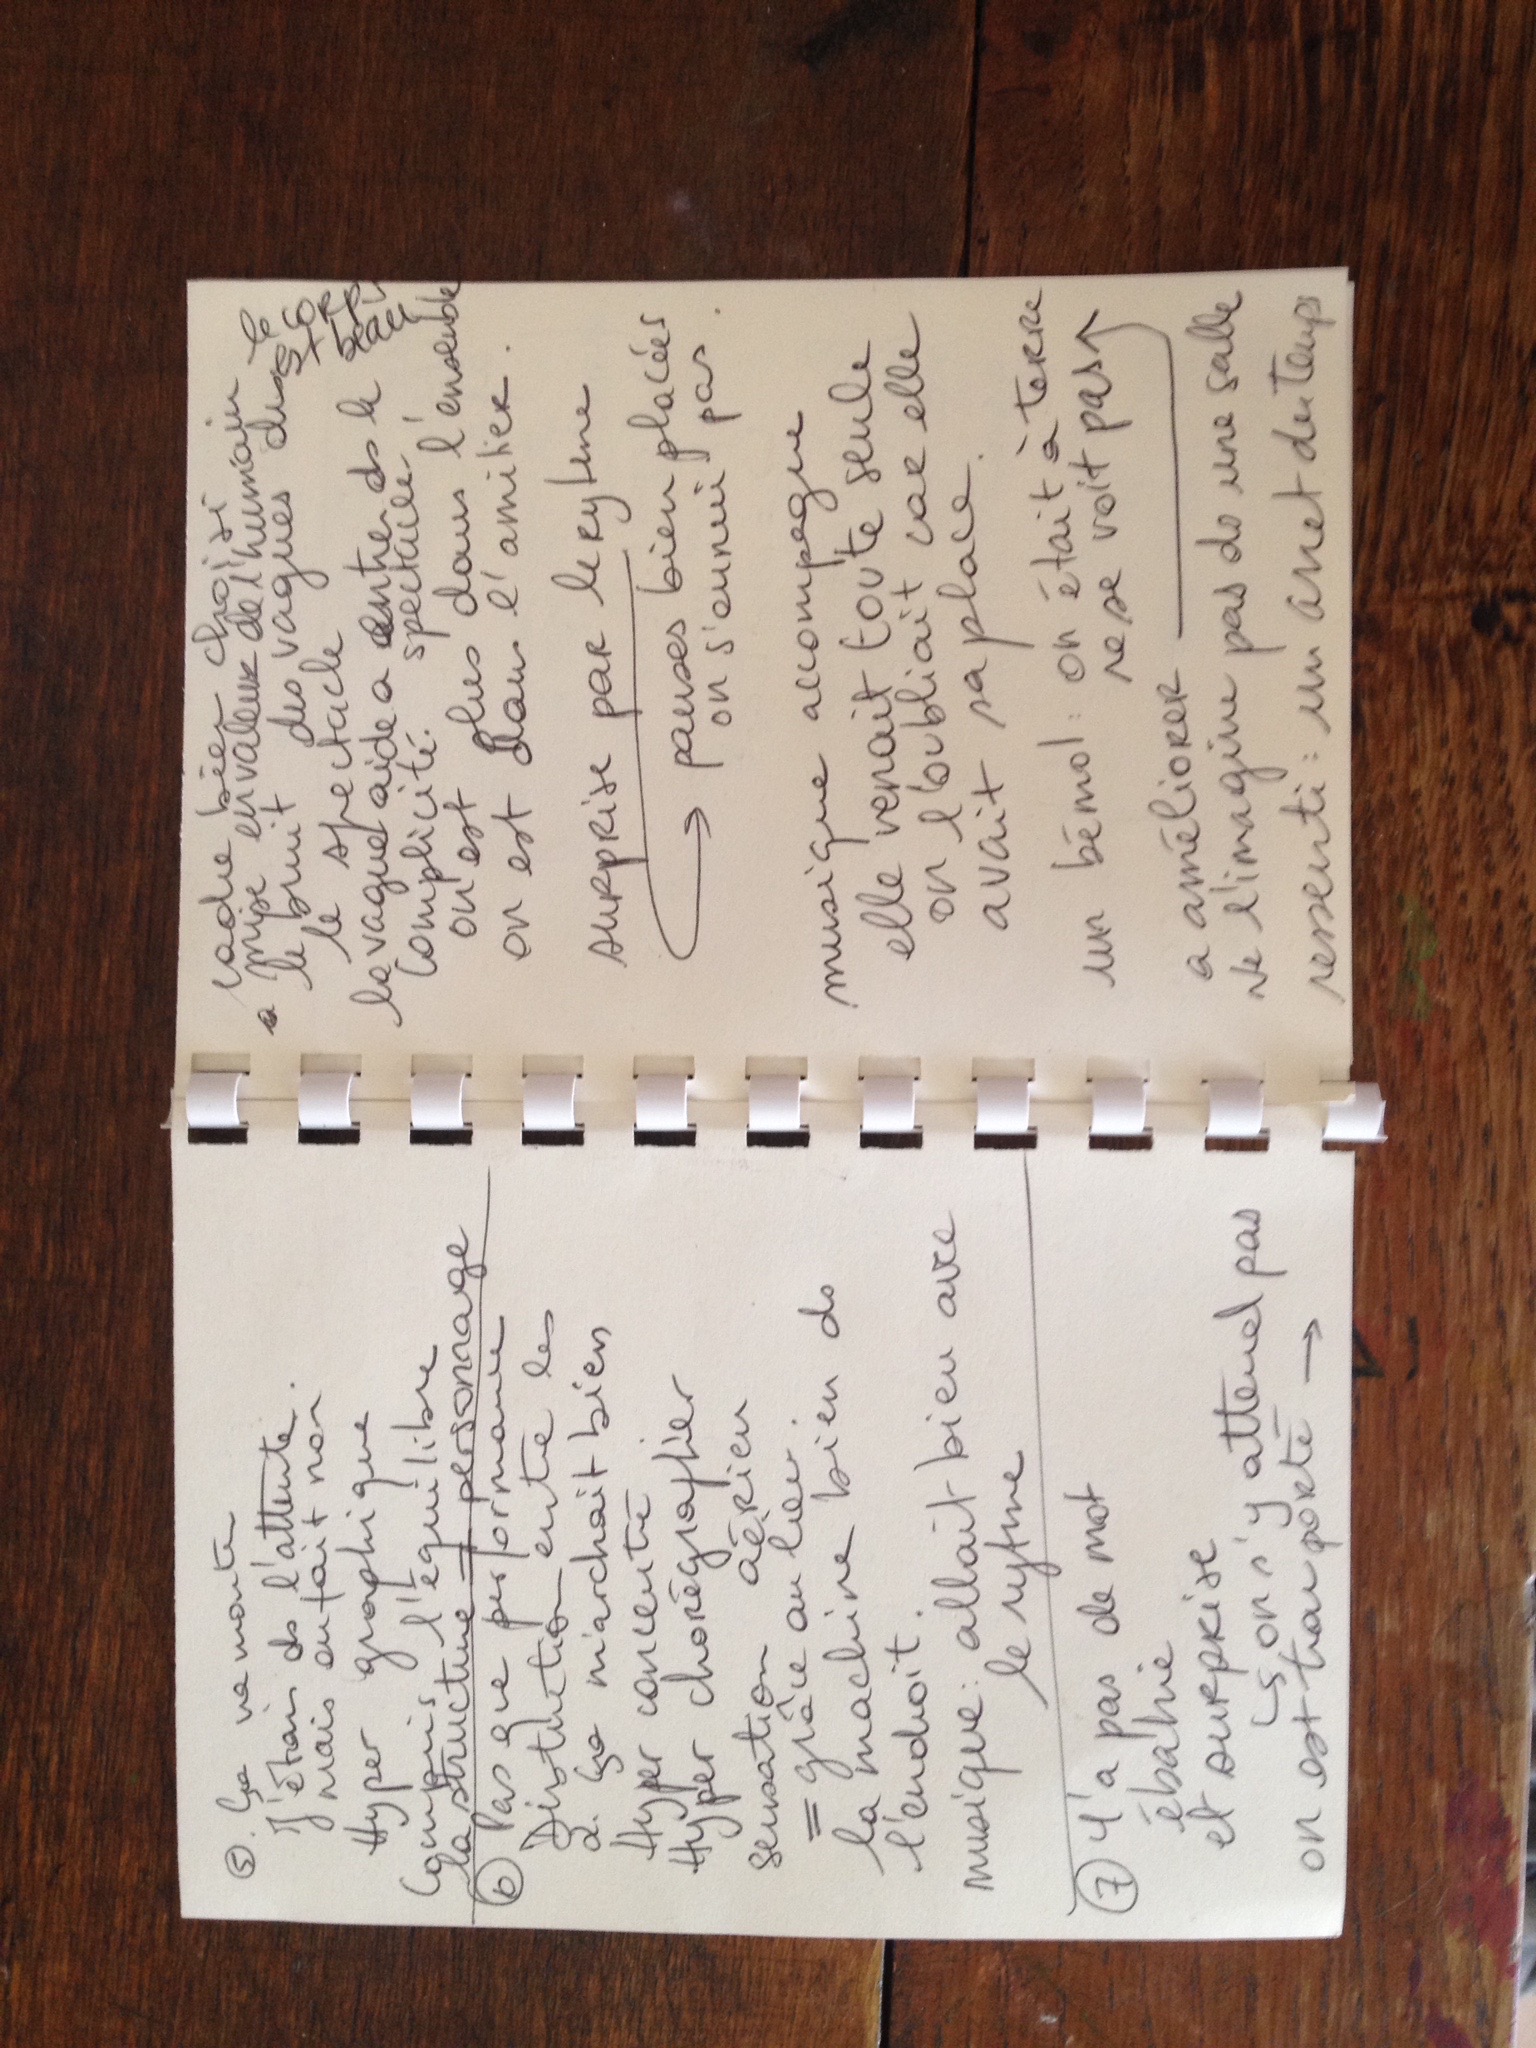 ⑤. Ça va monter
J'étais ds l'attente.
mais en fait non
Hyper graphique
Compris l'équilibre
la structure = personnage
⑥ Pas que performance
Distinction entre les
2. Ça m'archait bien
Hyper concentré
Hyper chorégraphier
sensation aérien
= grâce au lieu.
la machine bien ds
l'endroit.
musique: allait bien avec
le rytme
⑦ Y'a pas de mot
ébahie
et surprise
↳ on s'y attend pas
on est transporté →
cadre bien choisi
a mise en valeur de l'humain
le bruit des vagues dus
le spectacle
le
beau
la vague aide a entrer ds le
complicité. spectacle
on est plus dans l'ensemble
on est dans l'amitier.
surprise par le rytme
→ pauses bien placées
on s'ennui pas.
musique accompagne
elle venait toute seule
on l'oubliait car elle
avait sa place.
un bémol: on était à terre
se voit pas
a améliorer
Ne l'imagine pas ds une salle
ressenti: un arret du temps